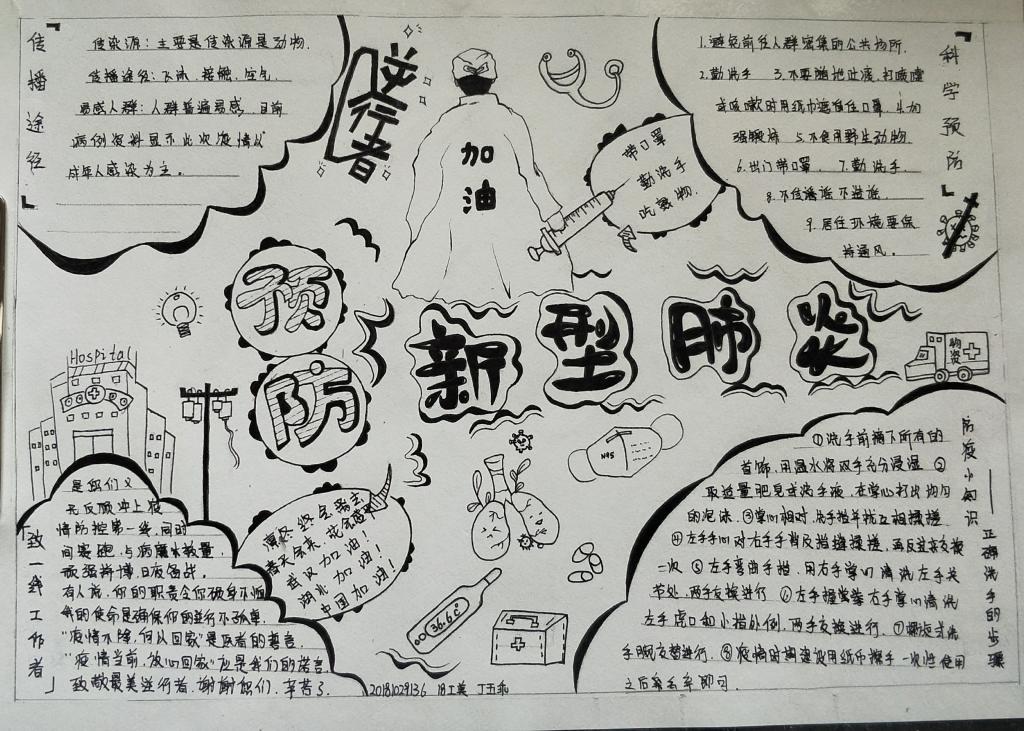 「传播途径」
传染源：主要是传染源是动物.
传播途径：飞沫、接触、空气.
易感人群：人群普遍易感，目前
病例资料显示此次疫情以
成年人感染为主。
逆行者
加油
带口罩
勤洗手
吃熟物.
「科学预防」
1.避免前往人群密集的公共场所.
2.勤洗手 3.不要随地吐痰，打喷嚏
或咳嗽时用纸巾遮住口罩，4.加
强锻炼 5.不食用野生动物.
6.出门带口罩 7.勤洗手.
8.不信谣谣不造谣.
9.居住环境要保
持通风。
预防
新型肺炎
物资
Hospital
N95
36.6c°
「致一线工作者」
是你们义
无反顾冲上疫
情防控第一线，同时
间赛跑，与病魔较量，
顽强拼搏，日夜备战。
有人说，你的职责令你
我的使命是确保你的逆行不孤单.
"疫情不除，何以回家"是医者的誓言
"疫情当前，放心回家"应是我们的诺言
致敬最美逆行者，谢谢你们，辛苦了.
寒冬终会离去
春天会来，花会盛开
武汉加油！
湖北加油！
中国加油！
20181029136 18工美 丁五乖
防疫小知识
——正确洗手的步骤
①洗手前摘下所有的
首饰，用温水将双手充分浸湿 ②
取适量肥皂或洗手液，在掌心打出均匀
的泡沫.③掌心相对，洗手指并拢互相揉搓
④左手手心对右手手背沿指缝揉搓，再反过来交换
一次 ⑤左手弯曲手指，用右手掌心清洗左手关
节处，两手交换进行 ⑥左手握掌拳右手掌心清洗
左手虎口和小指外侧，两手交换进行.⑦螺旋式洗
手腕交替进行.⑧疫情时期建议用纸巾擦手一次性使用
之后丢弃即可.